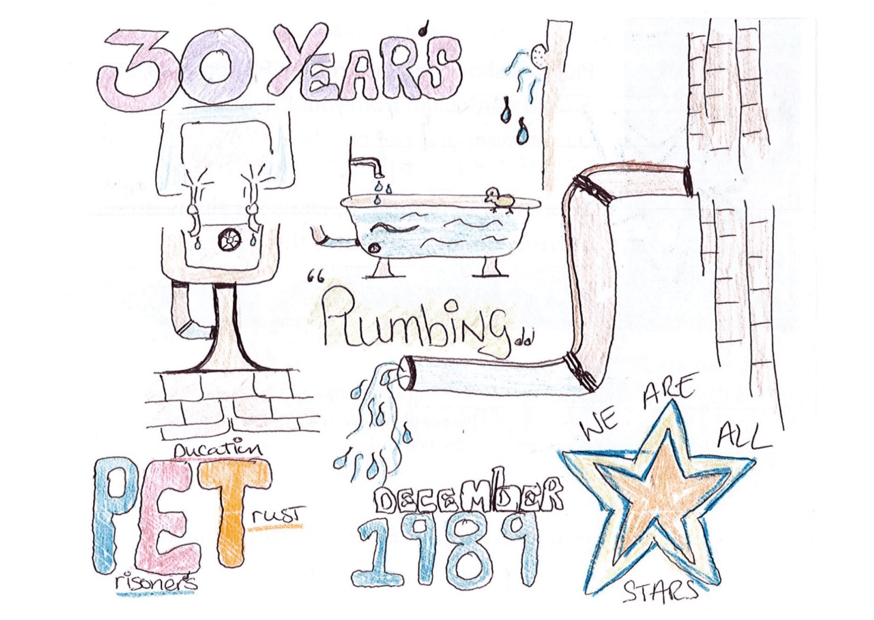 30 YEAR'S
“ Plumbing „
WE ARE ALL
STARS
Ducation
PET
rust
risoners
DECEMBER
1989